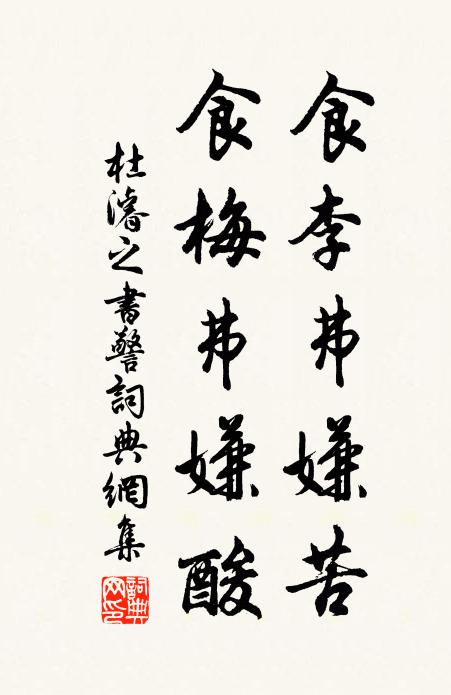 食李弗嫌苦
食梅弗嫌酸
杜濬之書警詞典網集
詞典網印